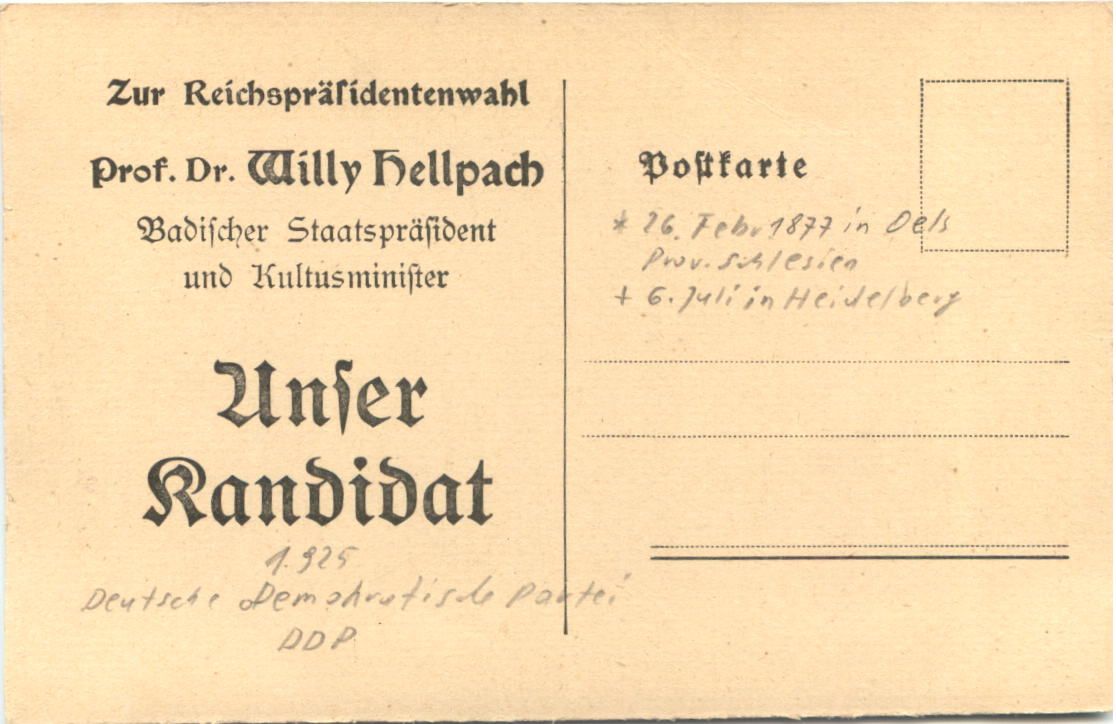 Zur Reichspräsidentenwahl
Prof. Dr. Willy Hellpach
Badischer Staatspräsident
und Kultusminister
Unser
Kandidat
1.925
Deutsche Demokratische Partei
DDP
Postkarte
* 26. Febr. 1877 in Oels
Prov. Schlesien
+ 6. Juli in Heidelberg